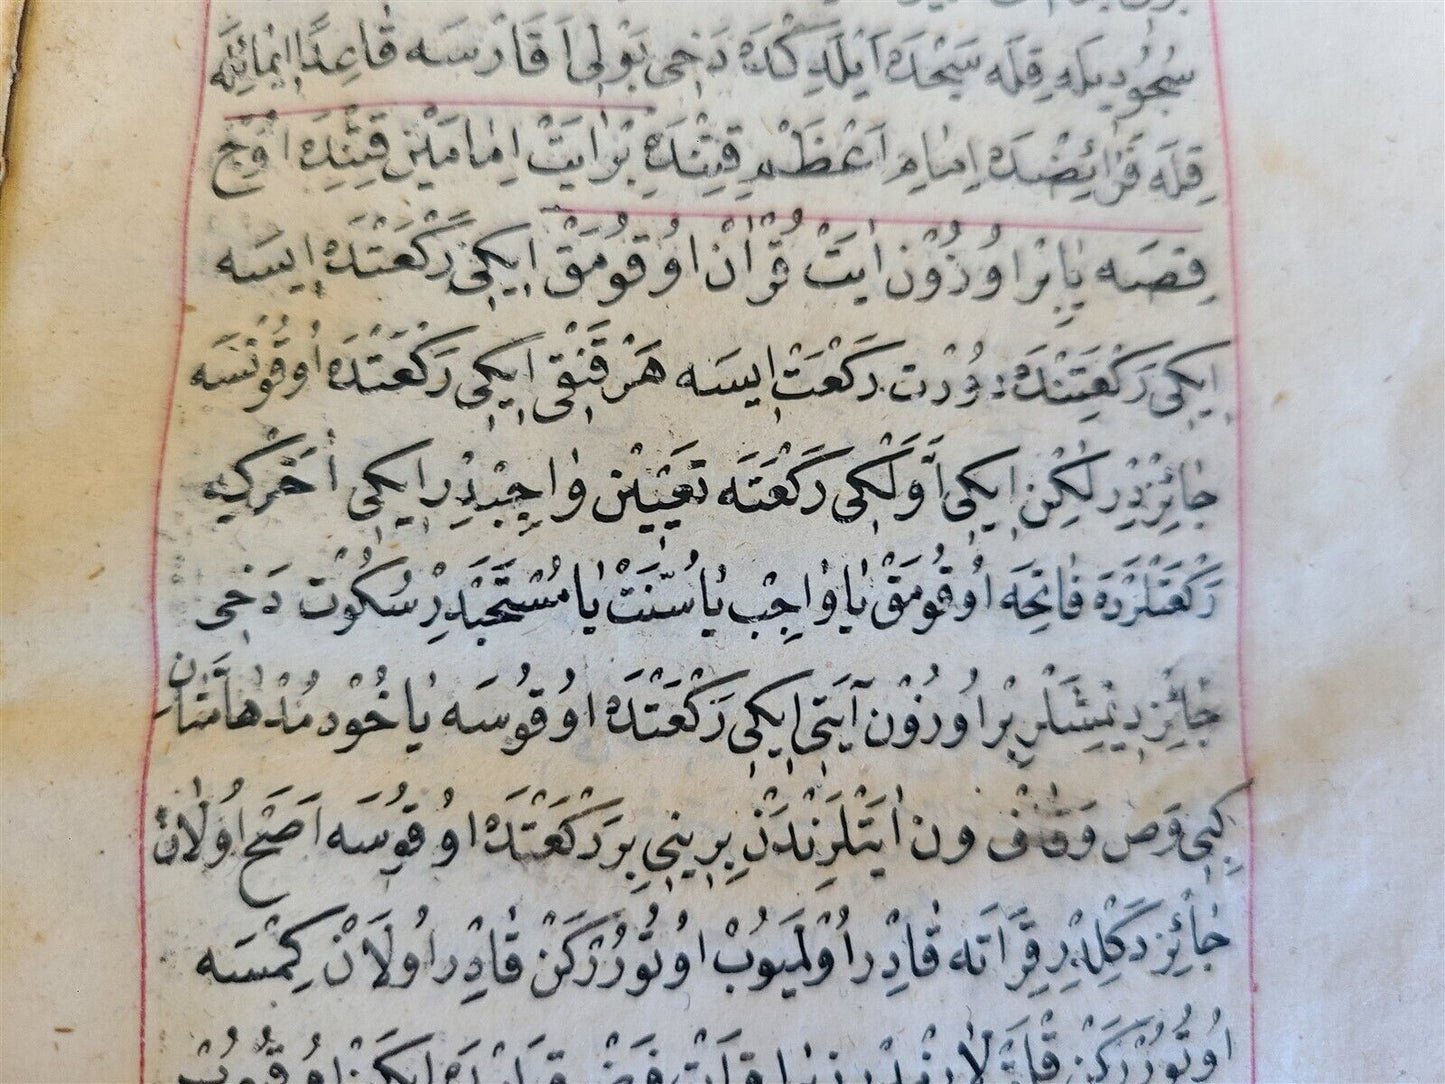 سُجُودِيلَهِ قِلَه سَجْدَهَ اَيْلَدِكْدَهْ دَخِى بَوْلِى اَقَارْسَه قَاعِدًا ايْمَائِيلَه
قِلَه قَرَائِضْدَه اِمَامِ اَعْظَمْ قِتِنْدَهِ بْرَايَتْ اِمَامَيْنْ قِتِنْدِه اُوْچ
قِصَه يَابِرْ اُوزُوْنْ اٰيَتْ قُرْاٰنْ اُوقُومَقْ اِيكِى رَكْعَتْدَهْ اِيسَه
اِيكِى رَكْعَتِنْدَه دُوْرْت رَكْعَتْ اِيسَه هَرْ قَنْقِى اِيكِى رَكْعَتْدَهْ اُوقُوْنْسَه
جَائِزْدِرْ لٰكِنْ اِيكِى اَوَّلْكِى رَكْعَتَه تَعْيِيْنْ وَاجِبْدِرْ اِيكِى اُخَرْكِيه
رَكْعَتْلَرْدَه فَاتِحَه اُوقُومَقْ يَا وَاجِبْ يَا سُنَّتْ يَا مُسْتَحَبْدِرْ سُكُوْت دَخِى
جَائِزْ دِيْمِشْلَرْ بِرْ اُورُوْنْ آيَتِى اِيكِى رَكْعَتْدَه اُوقُوسَه يَاخُوْد مُدْهَامَّتَانِ
كِبِى وَص وَق وَن اٰيَتْلَرِنْدَنْ بِرِينِى بِرَ رَكْعَتْدَه اُوقُوسَه اَصَحْ اُولَانْ
جَائِزْ دَكِلْدِرْ قِرَاتَه قَادِرْ اُوْلْمَيُوبْ اُوتُوْرُرْكَنْ قَادِرْ اُولَانْ كِمْسَه